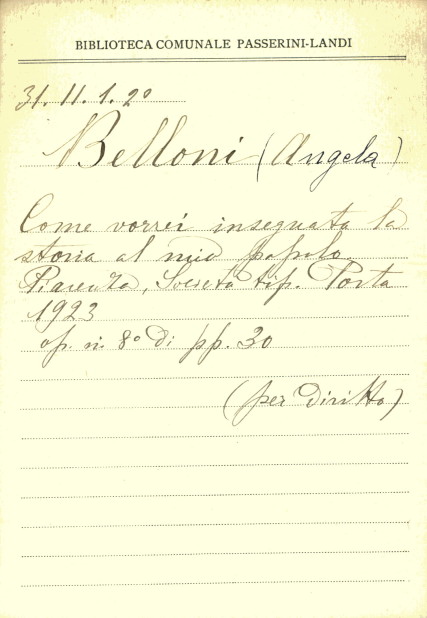 BIBLIOTECA COMUNALE PASSERINI-LANDI
31. 11. 1. 2º
Belloni (Angela)
Come vorrei insegnata la
storia al mio popolo.
Piacenza, Società tip. Porta
1923
op. in 8º di pp. 30
(per diritto)